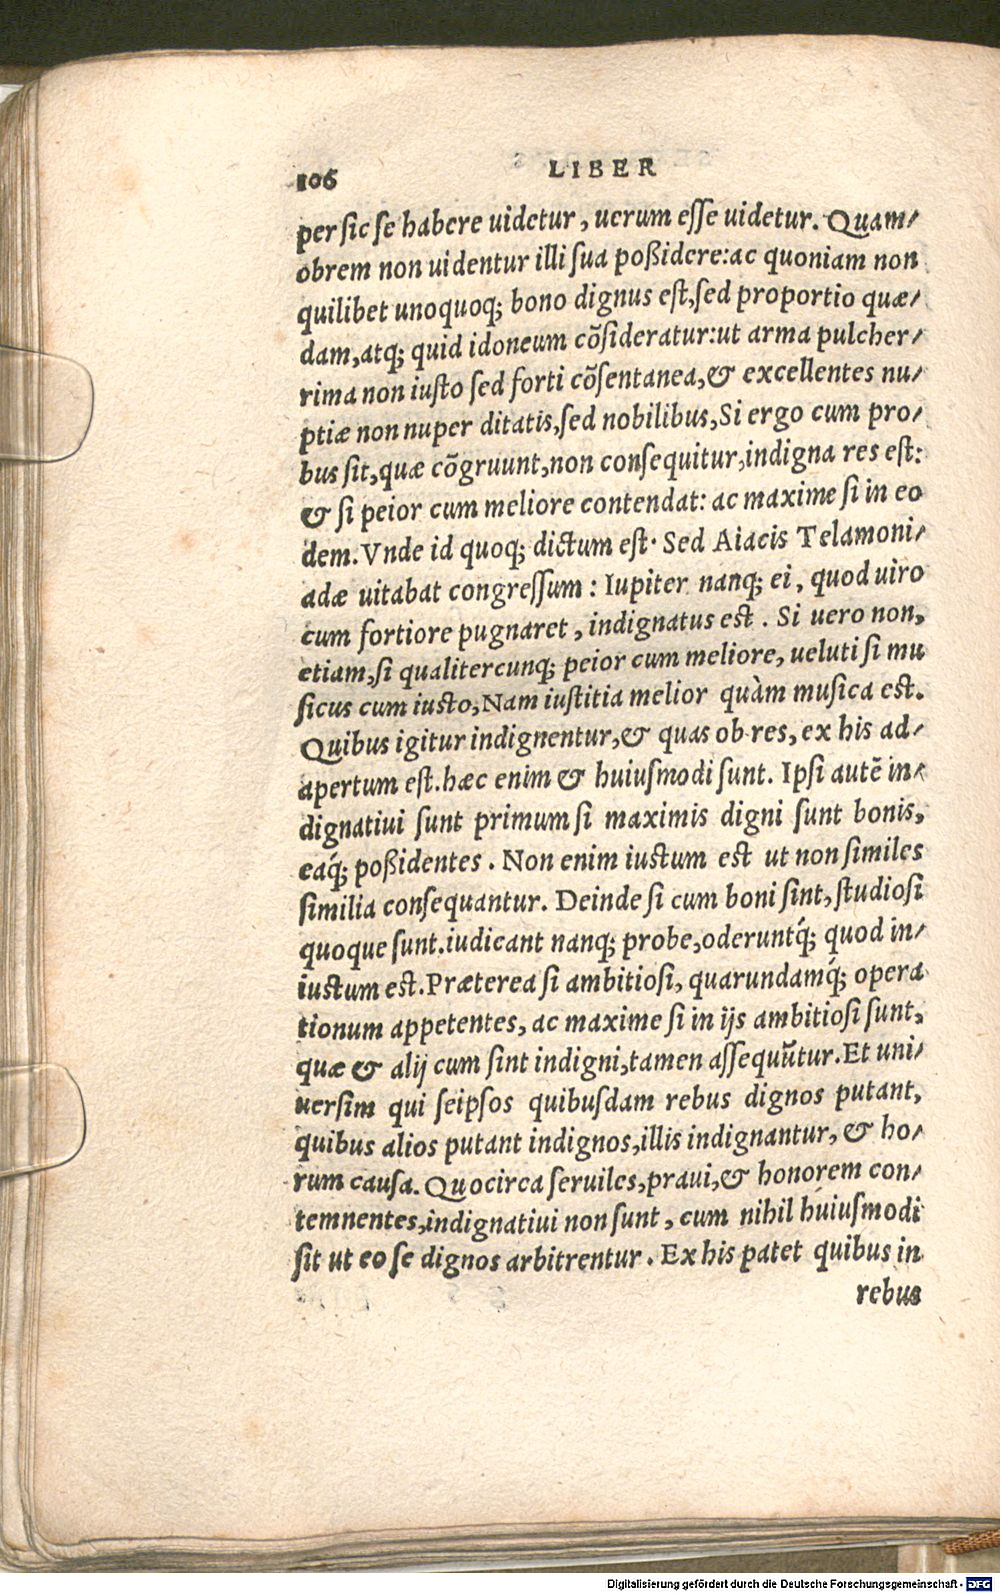 106 LIBER
per sic se habere uidetur, uerum esse uidetur. Quam/
obrem non uidentur illi sua poßidere:ac quoniam non
quilibet unoquoq; bono dignus est,sed proportio quæ/
dam,atq; quid idoneum cõsideratur:ut arma pulcher/
rima non iusto sed forti cõsentanea,& excellentes nu/
ptiæ non nuper ditatis,sed nobilibus,Si ergo cum pro/
bus sit,quæ cõgruunt,non consequitur,indigna res est:
& si peior cum meliore contendat: ac maxime si in eo
dem.Vnde id quoq; dictum est· Sed Aiacis Telamoni/
adæ uitabat congressum: Iupiter nanq; ei, quod uiro
cum fortiore pugnaret, indignatus est. Si uero non,
etiam,si qualitercunq; peior cum meliore, ueluti si mu
sicus cum iusto,Nam iustitia melior quàm musica est.
Quibus igitur indignentur,& quas ob res, ex his ad/
apertum est.hæc enim & huiusmodi sunt. Ipsi autẽ in/
dignatiui sunt primum si maximis digni sunt bonis,
eaq́; poßidentes. Non enim iustum est ut non similes
similia consequantur. Deinde si cum boni sint, studiosi
quoque sunt.iudicant nanq; probe,oderuntq́; quod in/
iustum est.Præterea si ambitiosi, quarundamq́; opera
tionum appetentes, ac maxime si in ijs ambitiosi sunt,
quæ & alij cum sint indigni,tamen assequũtur.Et uni/
uersim qui seipsos quibusdam rebus dignos putant,
quibus alios putant indignos,illis indignantur, & ho/
rum causa. Quocirca seruiles,praui,& honorem con/
temnentes,indignatiui non sunt, cum nihil huiusmodi
sit ut eo se dignos arbitrentur. Ex his patet quibus in
rebus
Digitalisierung gefördert durch die Deutsche Forschungsgemeinschaft - DFG